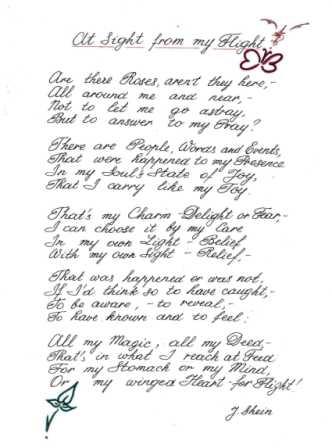 At Sight from my Flight
Are there Roses, aren't they here,-
All around me and near,-
Not to let me go astray,
But to answer to my Pray?
There are People, Words and Events,
That were happened to my Presence
In my Soul's State of Joy,
That I carry like my Toy.
That's my Charm - Delight or Fear,-
I can choose it by my Care
In my own Light - Belief
With my own Sight - Relief,-
That was happened or was not,
If I'd think so to have caught,-
To be aware, - to reveal,-
To have known and to feel:
All my Magic, all my Deed,-
That's in what I reach at Feed
For my Stomach or my Mind,
Or my winged Heart - for Flight!
J. Shein